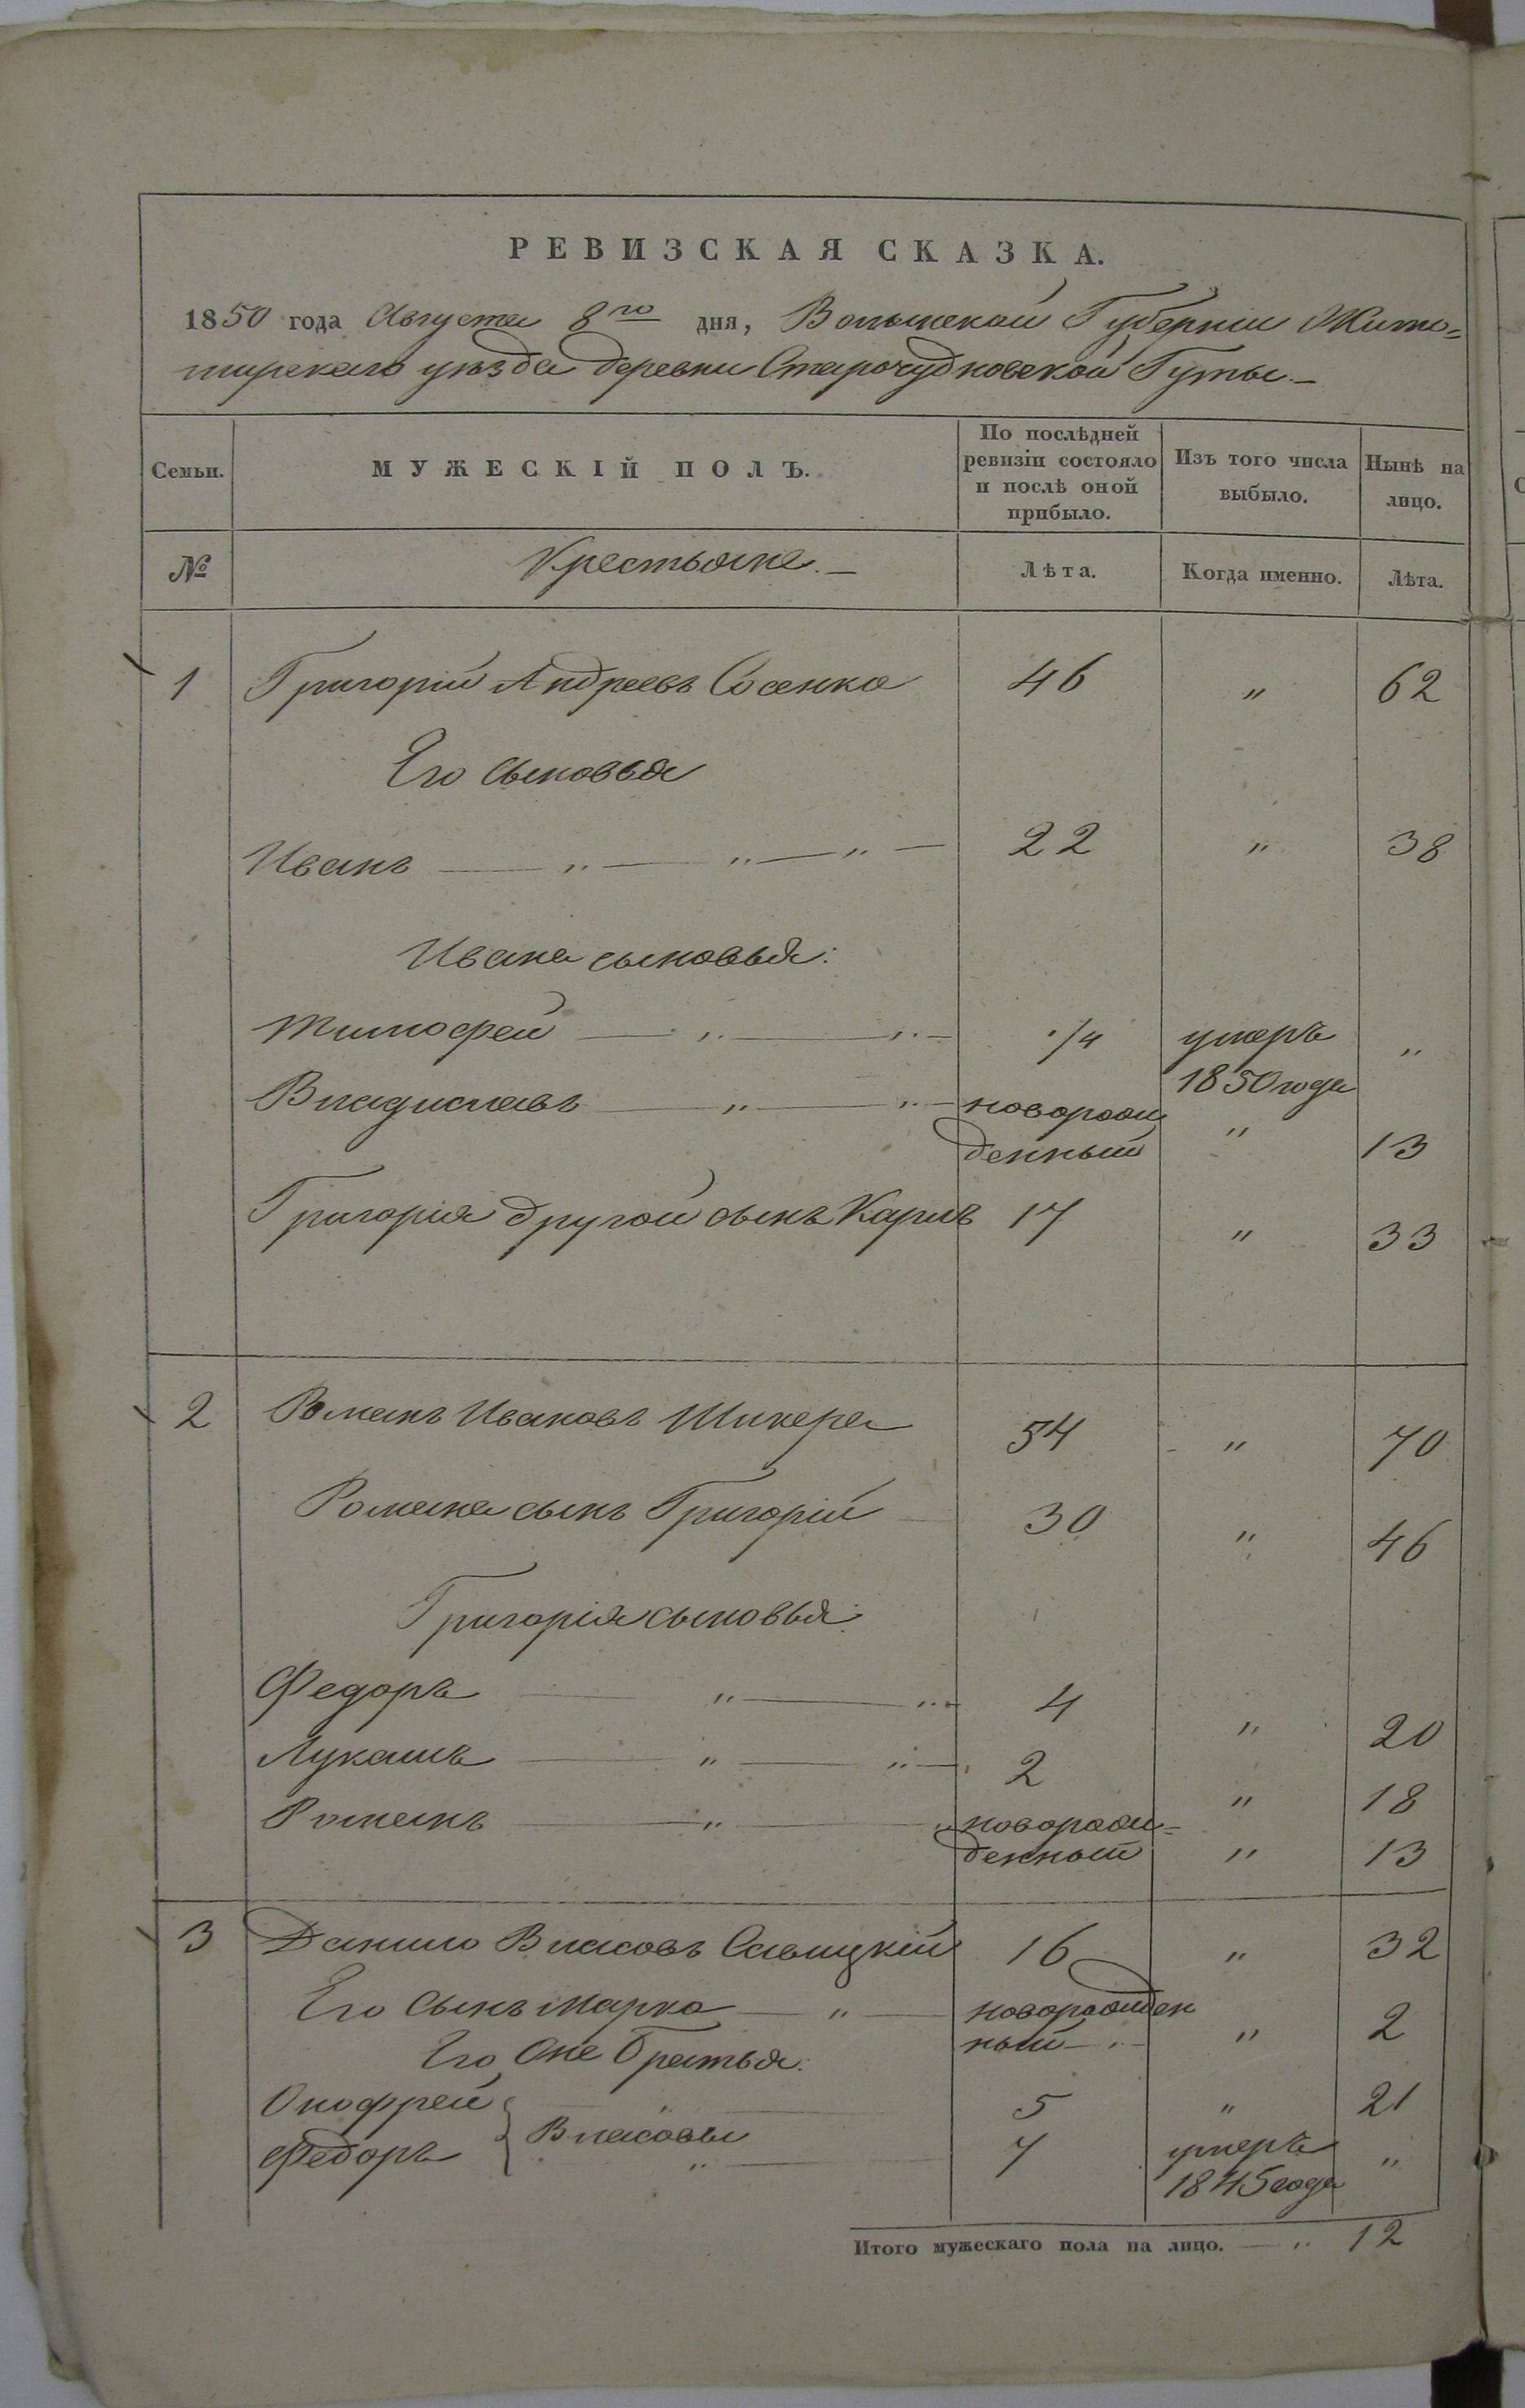 РЕВИЗСКАЯ СКАЗКА.
1850 года Августа 8го дня, Волынской Губерніи Жито-
мирскаго уѣзда деревни Старочудновской Гуты.—
Семьи. МУЖЕСКІЙ ПОЛЪ. По послѣдней ревизіи состояло и послѣ оной прибыло. Изъ того числа выбыло. Нынѣ на лицо.
№ Крестьяне.— Лѣта. Когда именно. Лѣта.
1 Григорій Андреевъ Сосенко 46 " 62
Его Сыновья
Иванъ — " — " — " — 22 " 38
Ивана сыновья:
Тимофей — " — " — 1/4 умеръ 1850 года "
Владиславъ — " — " — новорож денный " 13
Григорія другой сынъ Карпъ 17 " 33
2 Романъ Ивановъ Шикера 54 " 70
Романа сынъ Григорій — 30 " 46
Григорія сыновья:
Федоръ — " — " — 4 " 20
Лукашъ — " — " — 2 " 18
Романъ — " — " новорож= денный " 13
3 Данило Власовъ Савицкій 16 " 32
Его Сынъ Марко — " — новорожден ный — " 2
Его Же Братья:
Онофрей } Власовы — 5 " 21
Федоръ " — 7 умеръ 1845 года "
Итого мужескаго пола на лицо. — " 12